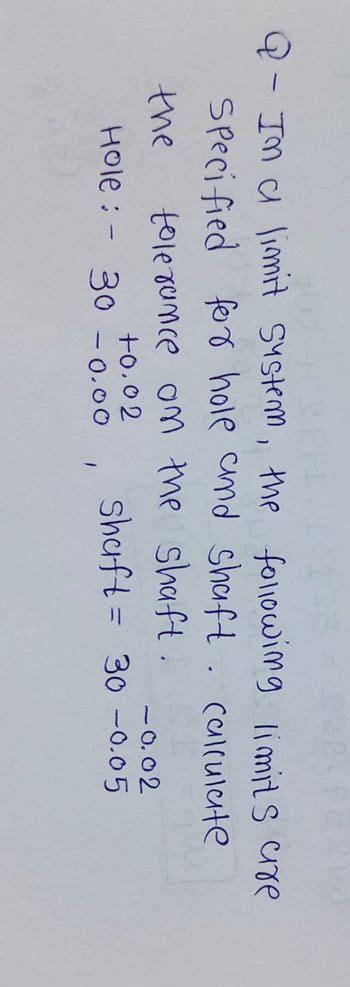 Q - In a limit system, the following limits are
specified for hole and shaft. calculate
the tolerance on the shaft.
+0.02 -0.02
Hole :- 30 -0.00 , shaft = 30 -0.05